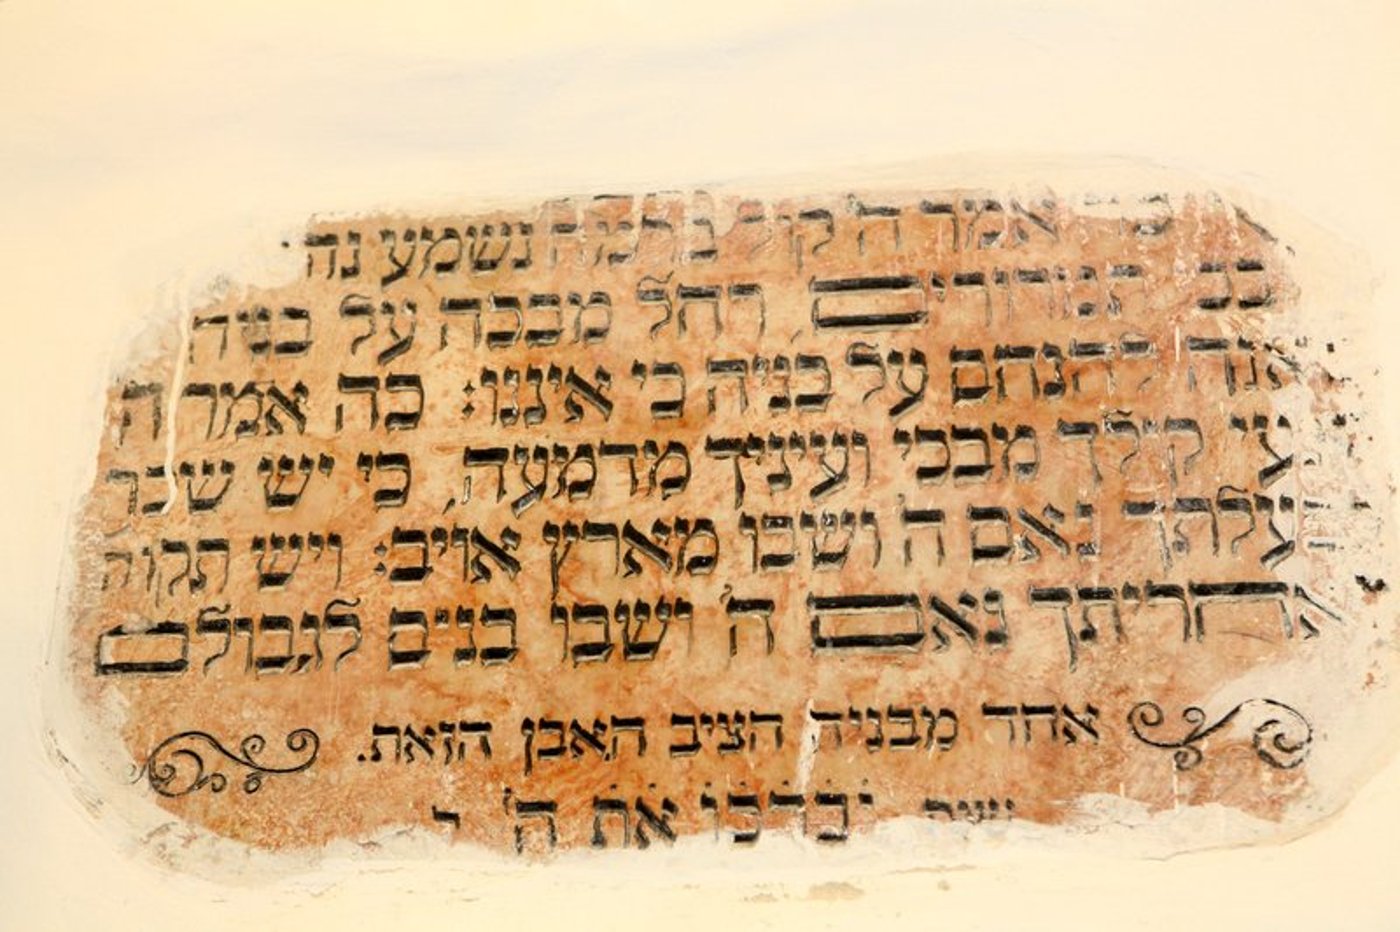 אמר ה' קול ברמה נשמע נה
תמרורים, רחל מבכה על בניה
מאנה להנחם על בניה כי איננו: כה אמר ה
קולך מבכי ועיניך מדמעה, כי יש שכר
לפעלתך נאם ה ושבו מארץ אויב: ויש תקוה
לאחריתך נאם ה' ושבו בנים לגבולם
אחד מבניה הציב האבן הזאת.
יברכו את ה'